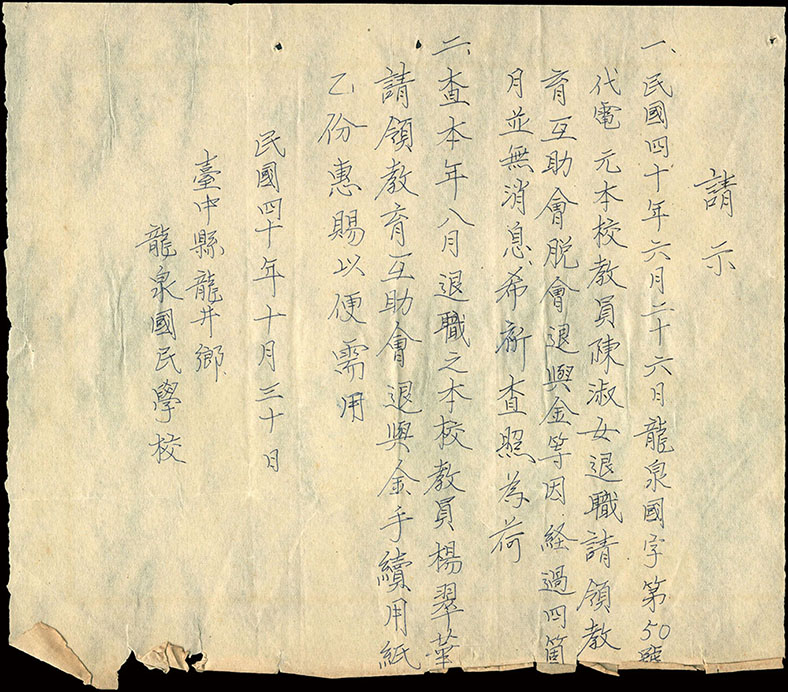 請示
一、民國四十年六月二十六日龍泉國字第50號
代電 元本校教員陳淑女退職請領教
育互助會脱會退與金等因.経過四箇
月並無消息希斉查照為荷
二、查本年八月退職之本校教員楊翠華
請領教育互助會退與金手續用紙
乙份惠賜以便需用
民國四十年十月三十日
臺中縣龍井鄉
龍泉國民學校